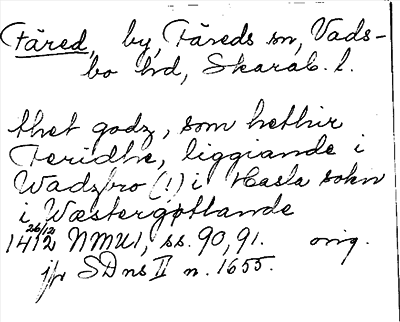 Färed, by, Färeds sn, Vads-
bo hd, Skarab. l.
thet godz, som hethir
Feridhe, liggiande i
Wadzbro (!) i Hasla sokn
i Wæstergøtlande
1412 26/12 NMU 1, ss. 90, 91. orig.
jfr SD ns II n. 1655.